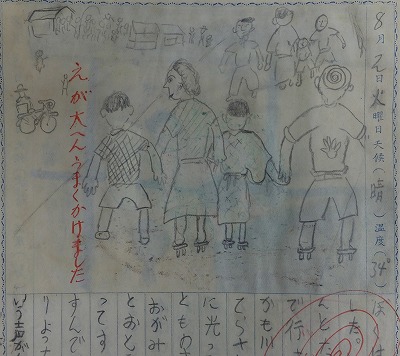 8月2日火曜日天候(晴)温度(34°)
えが大へんうまくかけました
した。
んとた
で行
かも川
てら
に光っ
ともの
おがみ
とおと
ってす
すんで
りよっ
いう